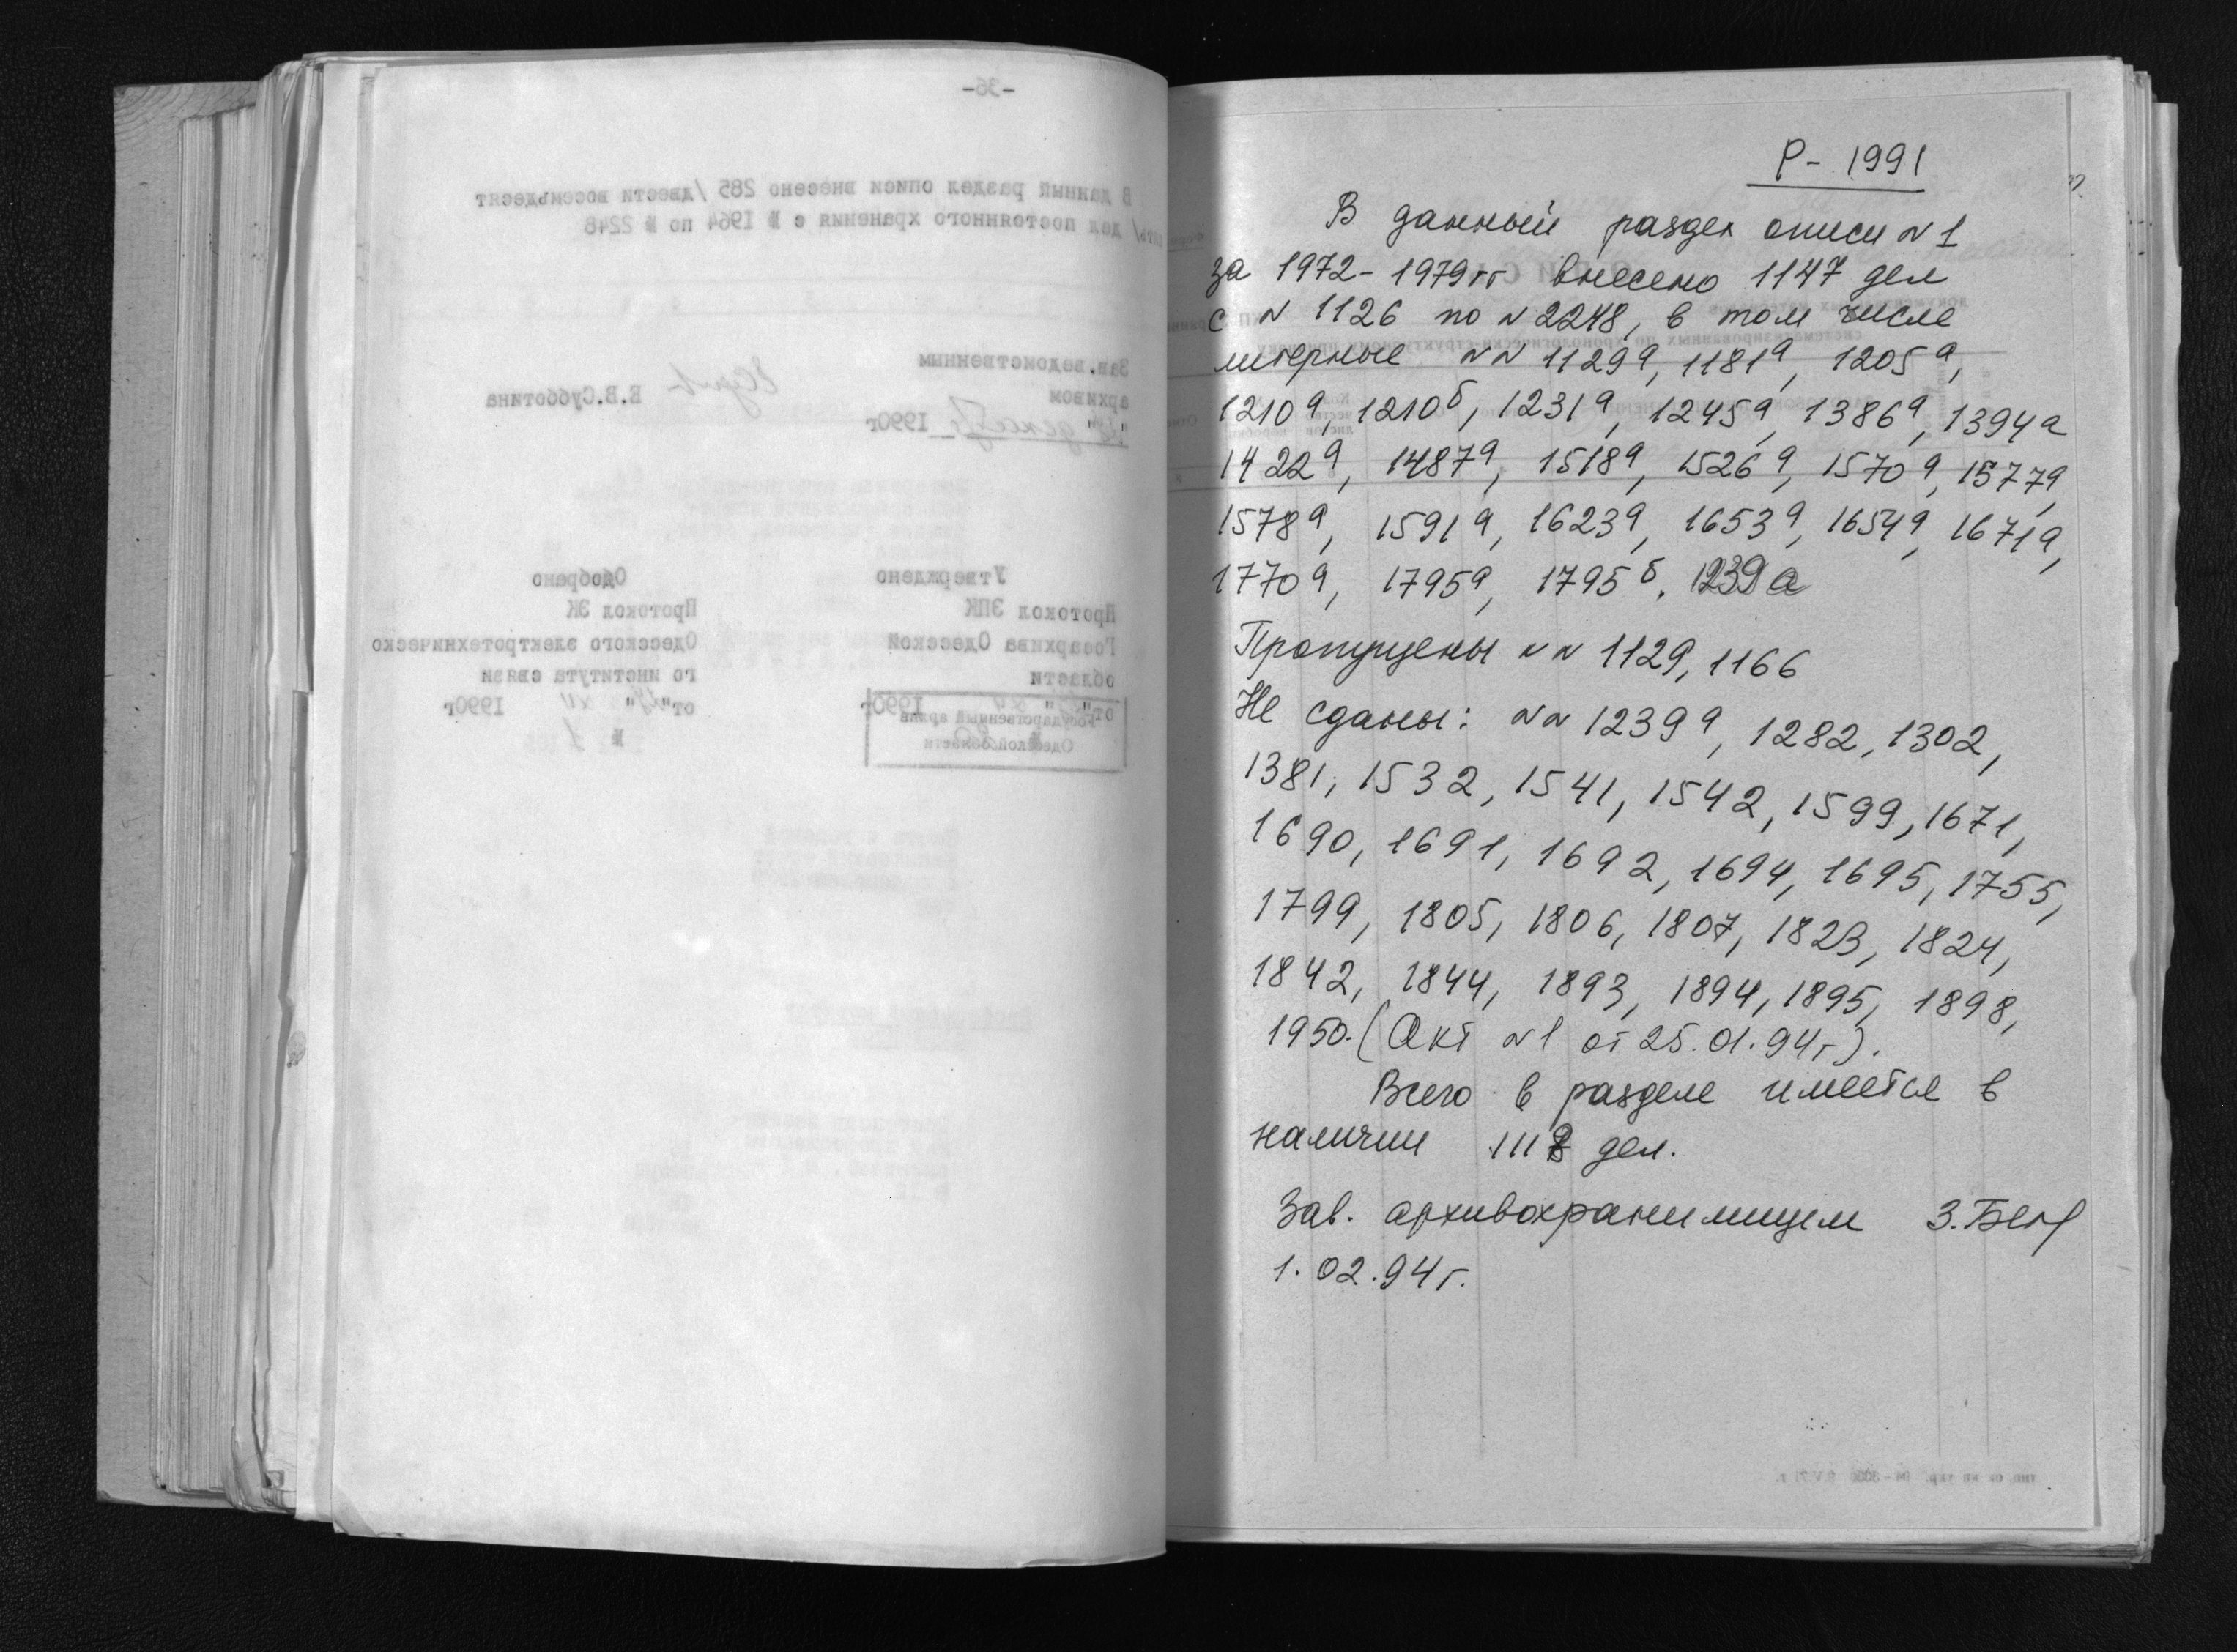 -36-
В данный раздел описи внесено 285 /двести восемьдесят
пять/ дел постоянного хранения с № 1964 по № 2248
Зав.ведомственным
архивом
В.В.Субботина
1990г
Утверждено
Протокол ЭПК
Госархива Одесской
области
от" " 1990г
Государственный архив
Одесской области
Одобрено
Протокол ЭК
Одесского электротехническо
го института связи
от" " 1990г
№ 1
Р- 1991
В данный раздел описи №1
за 1972-1979гг внесено 1147 дел
с № 1126 по №2248, в том числе
литерные №№ 1129а, 1181а, 1205а,
1210а, 1210б, 1231а, 1245а, 1386а, 1394а
1422а, 1487а, 1518а, 1526а, 1570а, 1577а,
1578а, 1591а, 1623а, 1653а, 1654а, 1671а,
1770а, 1795а, 1795б. 1239а
Пропущены №№ 1129, 1166
Не сданы: №№ 1239а, 1282, 1302,
1381, 1532, 1541, 1542, 1599, 1671,
1690, 1691, 1692, 1694, 1695, 1755,
1799, 1805, 1806, 1807, 1823, 1824,
1842, 1844, 1893, 1894, 1895, 1898,
1950. (Акт №1 от 25.01.94г).
Всего в разделе имеется в
наличии дел.
Зав. архивохранилищем
1.02.94г.